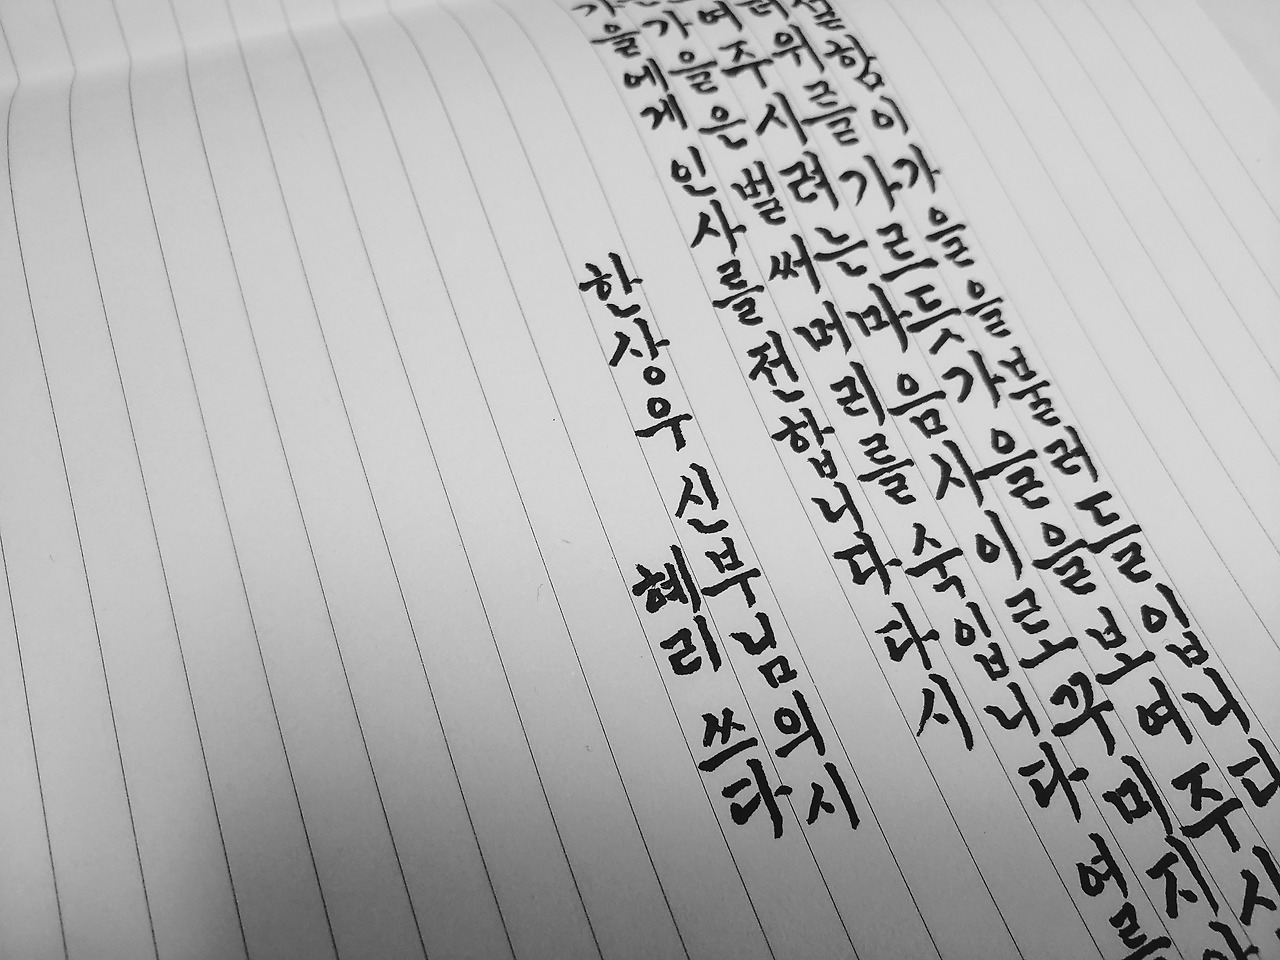 함이 가을을 불러들입니다
위를 가르듯 가을을 보여주시
여주시려는 마음 사이로 꾸미지
가을은 벌써 머리를 숙입니다 여름
가을에게 인사를 전합니다 다시
한상우 신부님의 시
혜리 쓰다